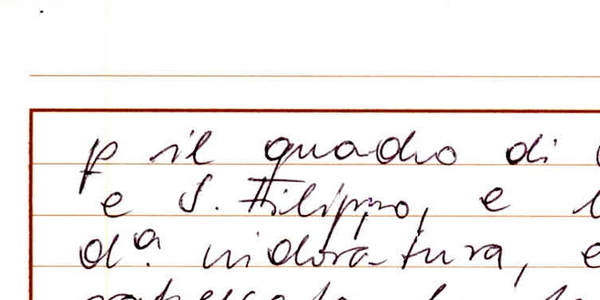 p il quadro di
e S. Filippo, e
dª. indoratura, e